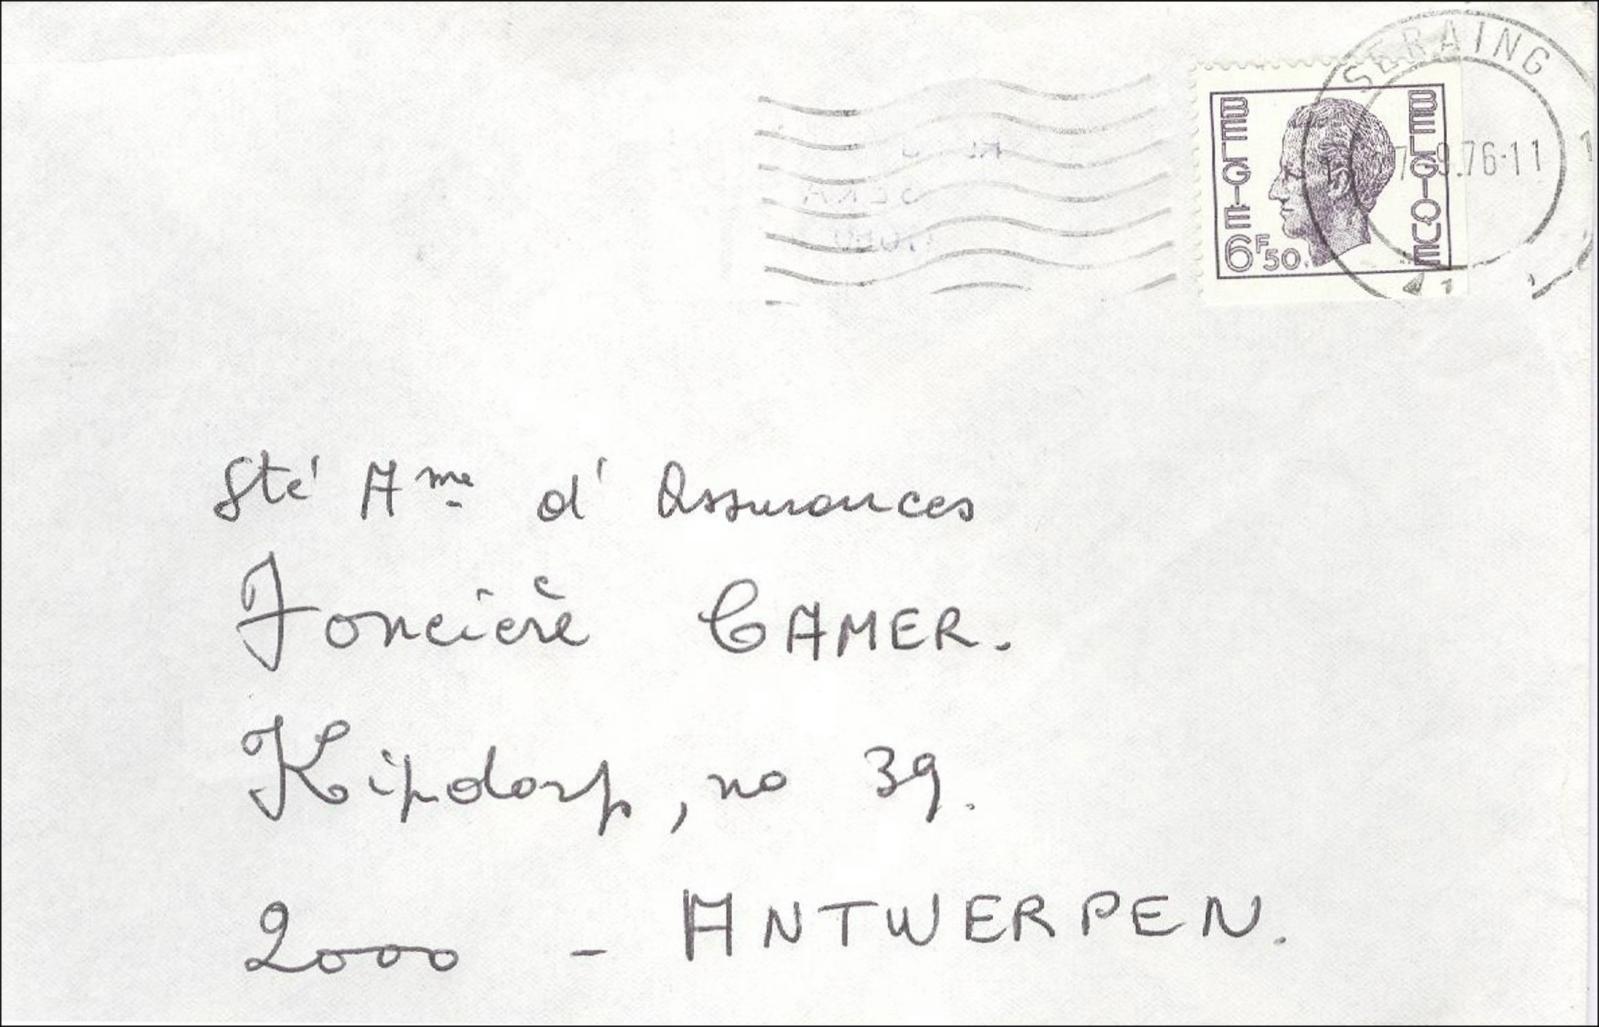 SERAING
BELGIE
BELGIQUE
9.76-11
6F50
Sté Ame d'Assurances
Foncière CAMER.
Kipdorp, no 39.
2000 - ANTWERPEN.